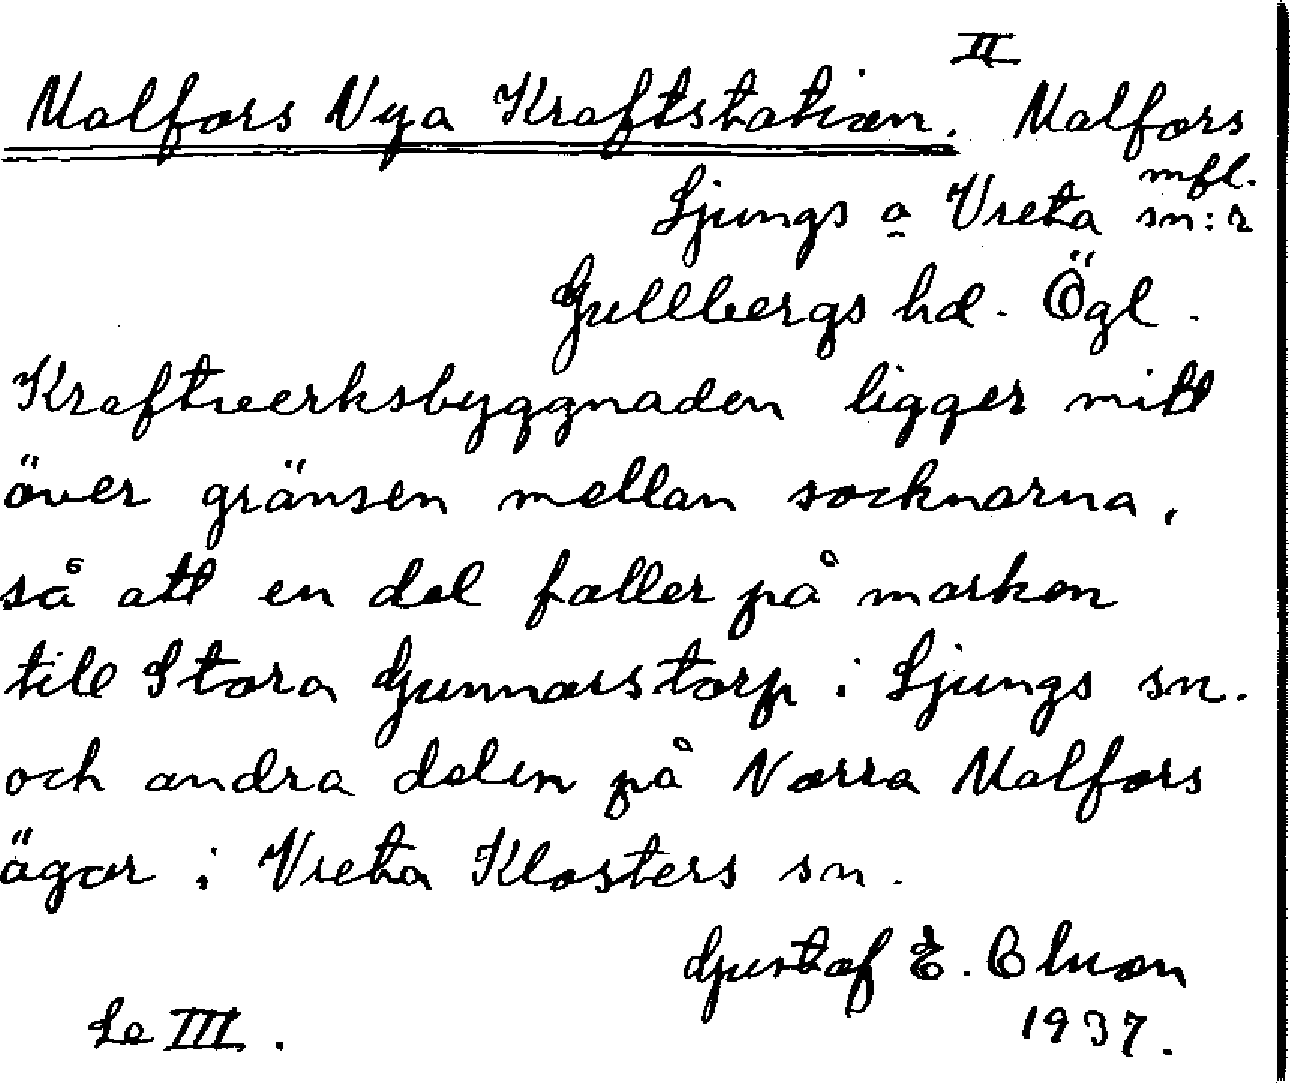 II
Malfors Nya Kraftstation. Malfors
mfl.
Ljungs o Vreta sn:r
Gullbergs hd. Ögl.
Kraftverksbyggnaden ligger mitt
över gränsen mellan socknarna,
så att en del faller på marken
till Stora Gunnarstorp i Ljungs sn.
och andra delen på Norra Malfors
ägor i Vreta Klosters sn.
Gustaf E.
Se III.
1937.